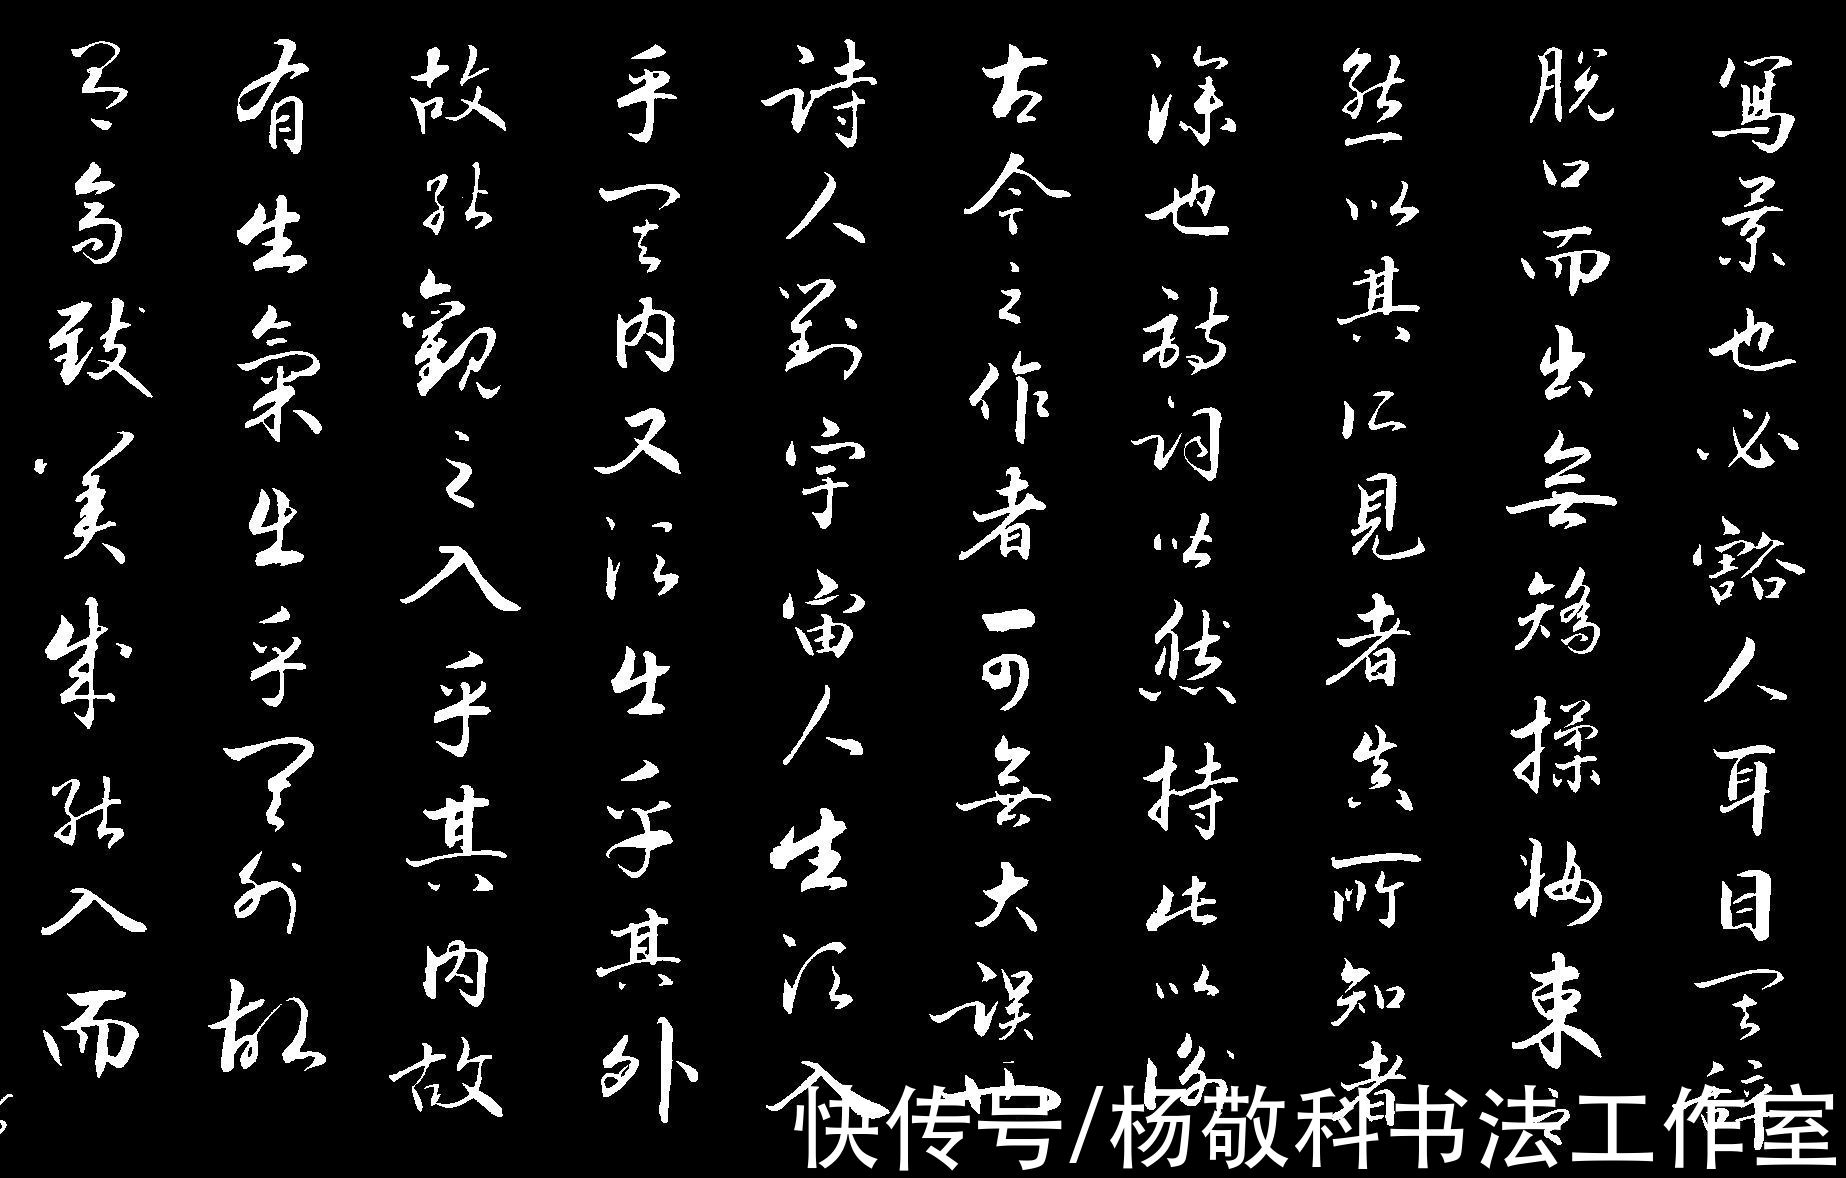 寫景也必豁人耳目其辭
脫口而出無矯揉妝束之
態以其所見者真所知者
深也詩詞皆然持此以衡
古今之作者可無大誤也
詩人對宇宙人生須入
乎其內又須出乎其外
故能觀之入乎其內故
有生氣出乎其外故
有高致美成能入而
快传号/杨敬科书法工作室